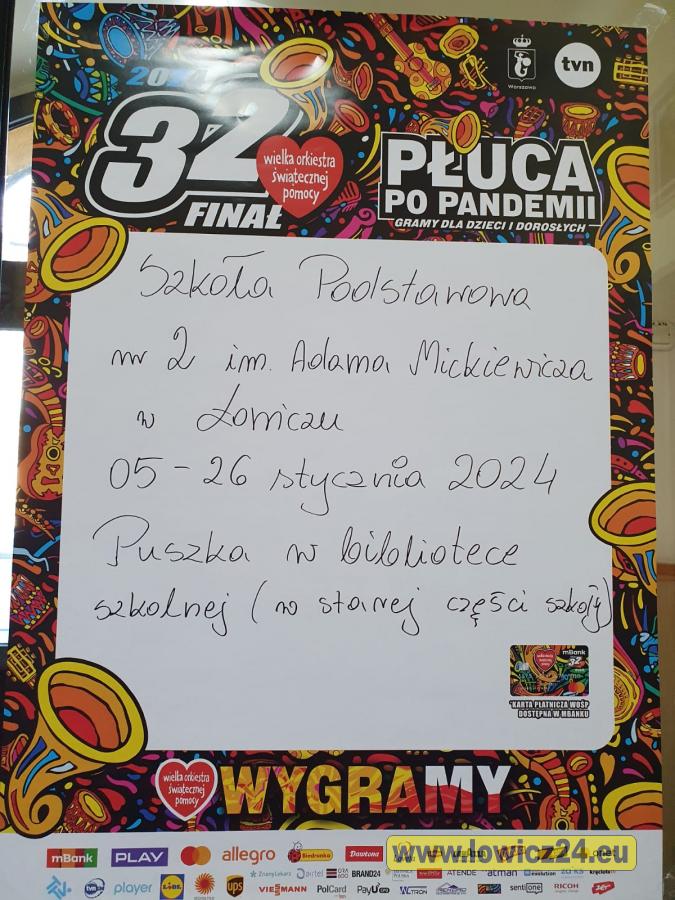 Warszawa
tvn
20
32
FINAŁ
wielka orkiestra
świątecznej
pomocy
PŁUCA
PO PANDEMII
GRAMY DLA DZIECI I DOROSŁYCH
Szkoła Podstawowa
nr 2 im. Adama Mickiewicza
w Łowiczu
05-26 stycznia 2024
Puszka w bibliotece
szkolnej (w starej części szkoły)
mBank
32
*KARTA PŁATNICZA WOŚP
DOSTĘPNA W MBANKU
wielka orkiestra
świątecznej
pomocy
WYGRAMY
mBank PLAY allegro Biedronka Dawtona
www.lowicz24.eu
tvn player LIDL ups VIESSMANN PolCard PayU ATENDE atman evolution kręcioła
BRAND24 sentiOne RICOH
ZnanyLekarz